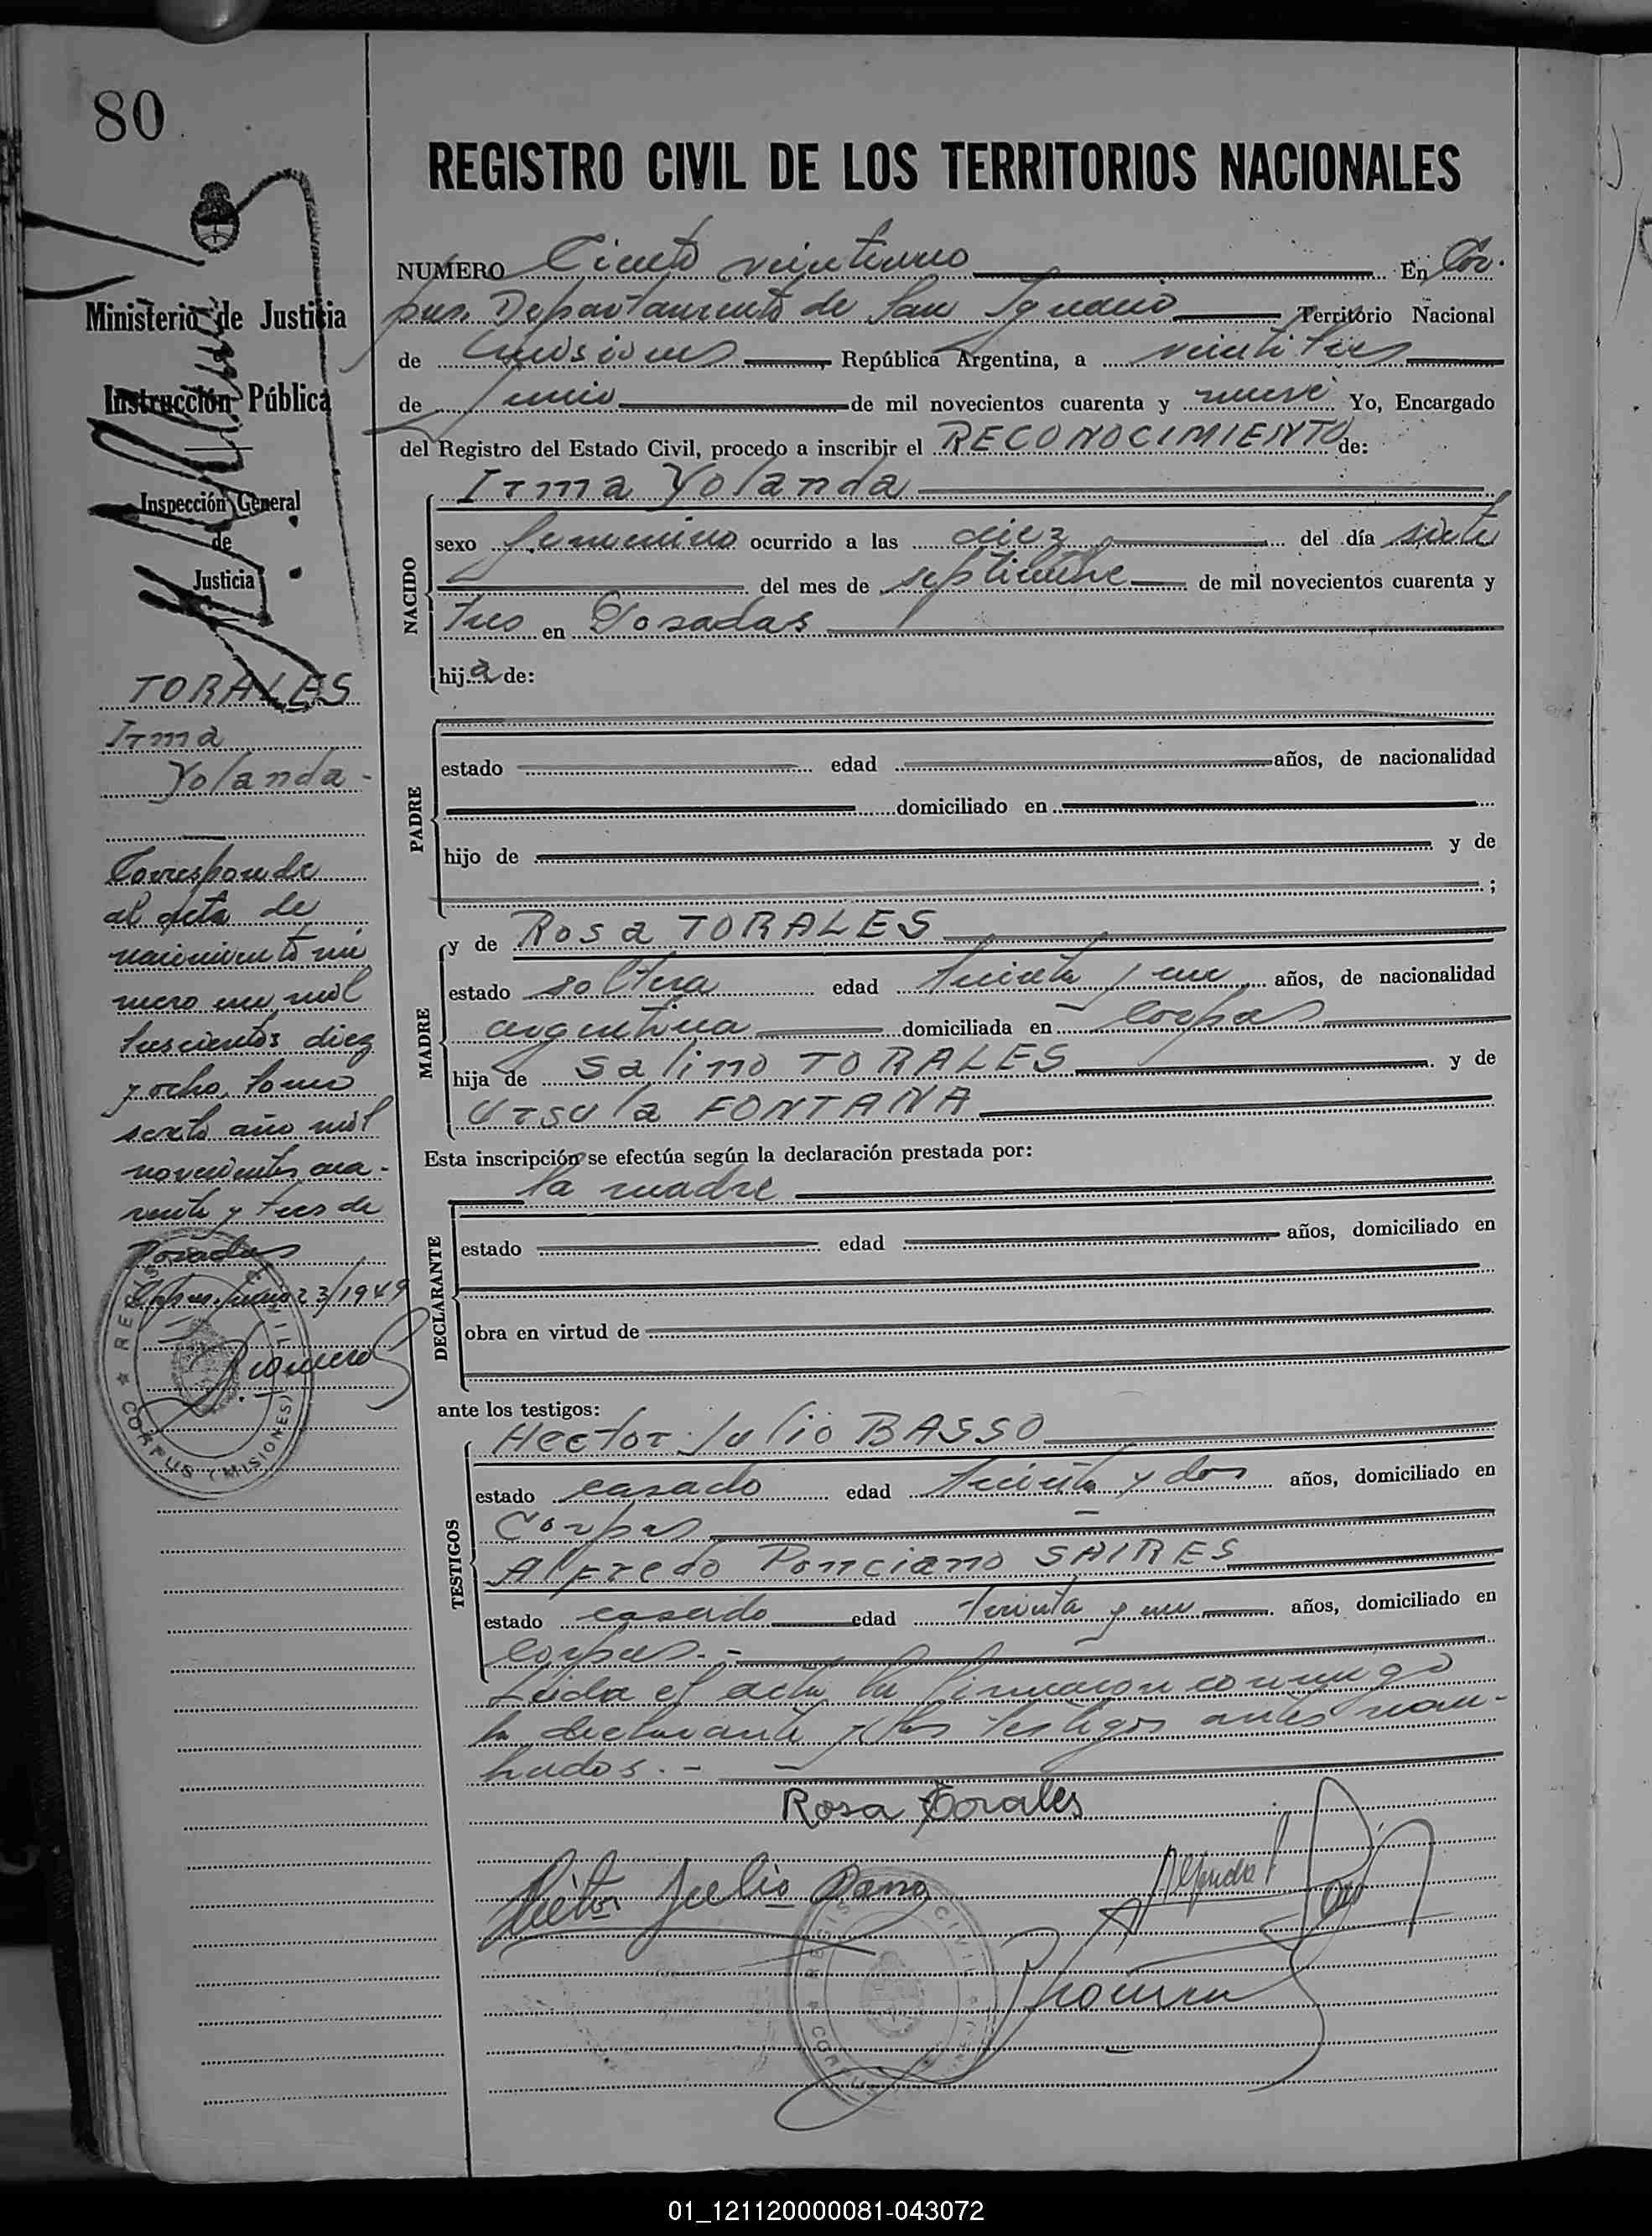 80
REGISTRO CIVIL DE LOS TERRITORIOS NACIONALES
Ministerio de Justicia
Instrucción Pública
Inspección General
de
Justicia
TORALES
Irma
Yolanda -
Corresponde
al acta de
nacimiento nú
mero un mil
trescientos diez
y ocho, tomo
sexto año mil
novecientos cua-
renta y tres de
Posadas
Corpus. Junio 23/1949
REGISTRO CIVIL
CORPUS (MISIONES)
NUMERO Ciento veintiuno En Cor-
pus. Departamento de San Ignacio Territorio Nacional
de Misiones República Argentina, a veintitres
de Junio de mil novecientos cuarenta y nueve Yo, Encargado
del Registro del Estado Civil, procedo a inscribir el RECONOCIMIENTO de:
NACIDO
Irma Yolanda
sexo femenino ocurrido a las diez del día siete
del mes de septiembre de mil novecientos cuarenta y
tres en Posadas
hija de:
PADRE
estado edad años, de nacionalidad
domiciliado en
hijo de y de
;
MADRE
y de Rosa TORALES
estado soltera edad treinta y un años, de nacionalidad
argentina domiciliada en Corpus
hija de Salino TORALES y de
Ursula FONTANA
Esta inscripción se efectúa según la declaración prestada por:
la madre
DECLARANTE
estado edad años, domiciliado en
obra en virtud de
ante los testigos:
TESTIGOS
Hector Julio BASSO
estado casado edad treinta y dos años, domiciliado en
Corpus
Alfredo Ponciano SAIRES
estado casado edad treinta y un años, domiciliado en
Corpus. -
Leida el acta la firmaron conmigo
la declarante y los testigos antes nom-
brados. -
Rosa Torales
Héctor Julio Basso
Alfredo P
REGISTRO CIVIL
CORPUS
01_121120000081-043072